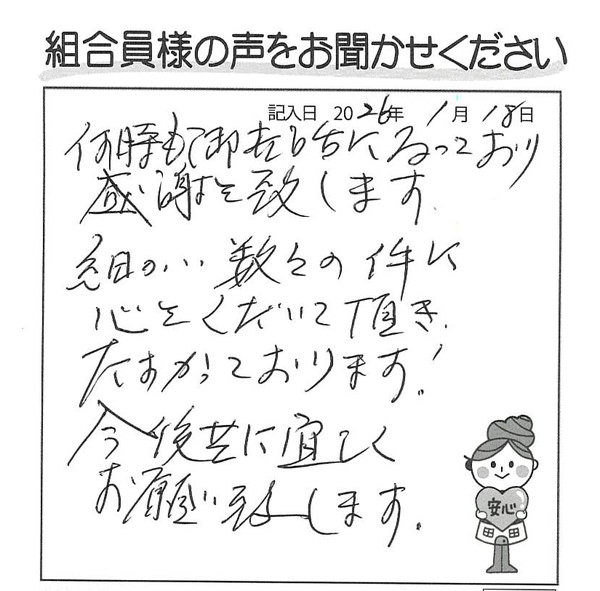 組合員様の声をお聞かせください
記入日 2026年 1月 18日
何時も御世話になっており
感謝を致します.
細かい 数々の件に
心をくだいて頂き.
たすかっております!
今後共に宜しく
お願い致します.
安心